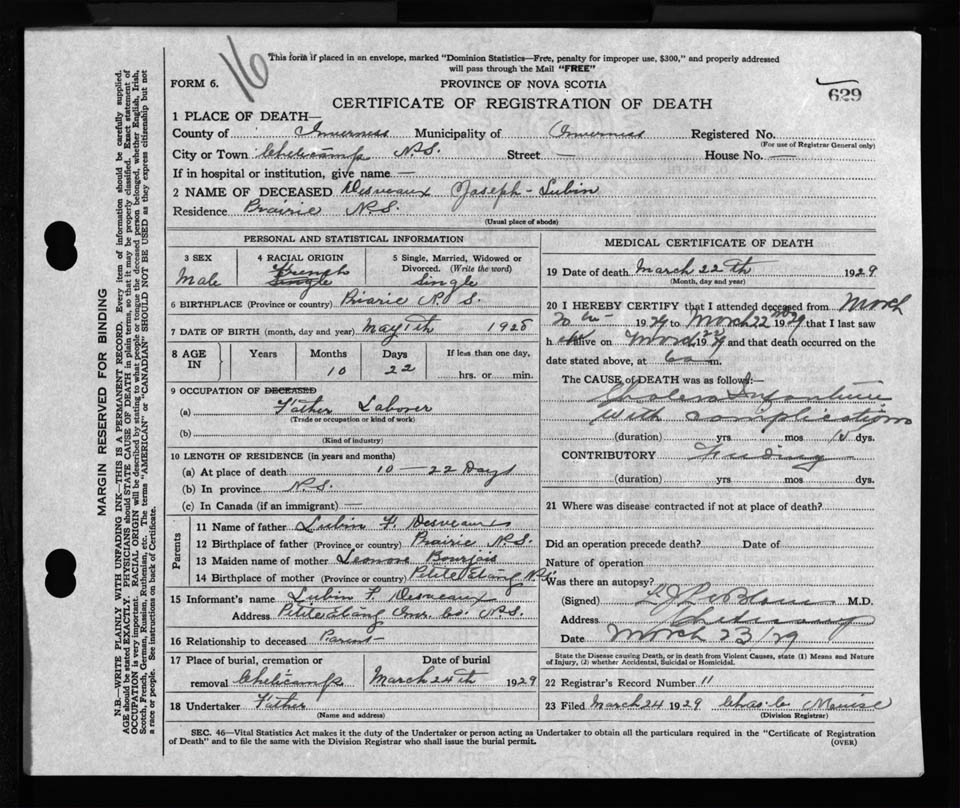 16
This form if placed in an envelope, marked "Dominion Statistics—Free, penalty for improper use, $300," and properly addressed
will pass through the Mail "FREE"
FORM 6.
PROVINCE OF NOVA SCOTIA
629
CERTIFICATE OF REGISTRATION OF DEATH
1 PLACE OF DEATH—
County of Inverness Municipality of Inverness Registered No.
(For use of Registrar General only)
City or Town Cheticamp N.S. Street — House No. —
If in hospital or institution, give name —
2 NAME OF DECEASED Desveaux Joseph-Lubin
Residence Prairie N.S.
(Usual place of abode)
PERSONAL AND STATISTICAL INFORMATION
3 SEX
Male
4 RACIAL ORIGIN
French
Single
5 Single, Married, Widowed or
Divorced. (Write the word)
Single
6 BIRTHPLACE (Province or country) Priarie N.S.
7 DATE OF BIRTH (month, day and year) May 1th 1928
8 AGE IN
Years
Months
10
Days
22
If less than one day,
hrs. or min.
9 OCCUPATION OF DECEASED
(a) Father Laborer
(Trade or occupation or kind of work)
(b)
(Kind of industry)
10 LENGTH OF RESIDENCE (in years and months)
(a) At place of death 10 — 22 Days
(b) In province N.S.
(c) In Canada (if an immigrant) —
Parents
11 Name of father Lubin F. Desveaux
12 Birthplace of father (Province or country) Prairie N.S.
13 Maiden name of mother Leonore Bourjois
14 Birthplace of mother (Province or country) Petite Etang N.S.
15 Informant's name Lubin F Desveaux
Address Petite Etang Inv. Co. N.S.
16 Relationship to deceased Parent
17 Place of burial, cremation or
removal Cheticamp
Date of burial
March 24th 1929
18 Undertaker Father
(Name and address)
MEDICAL CERTIFICATE OF DEATH
19 Date of death March 22th 1929
(Month, day and year)
20 I HEREBY CERTIFY that I attended deceased from March
20 1929 to March 22 1929 that I last saw
h alive on March 22 1929 and that death occurred on the
date stated above, at 6 a m.
The CAUSE of DEATH was as follows:—
Cholera Infantum
with complications
(duration) yrs. mos dys.
CONTRIBUTORY Feeding
(duration) yrs. mos dys.
21 Where was disease contracted if not at place of death?
Did an operation precede death? Date of
Nature of operation
Was there an autopsy?
(Signed) M.D.
Address Cheticamp
Date March 23/29
State the Disease causing Death, or in death from Violent Causes, state (1) Means and Nature
of Injury, (2) whether Accidental, Suicidal or Homicidal.
22 Registrar's Record Number 11
23 Filed March 24 1929
(Division Registrar)
SEC. 46—Vital Statistics Act makes it the duty of the Undertaker or person acting as Undertaker to obtain all the particulars required in the "Certificate of Registration
of Death" and to file the same with the Division Registrar who shall issue the burial permit.
(OVER)
MARGIN RESERVED FOR BINDING
N.B.—WRITE PLAINLY WITH UNFADING INK—THIS IS A PERMANENT RECORD. Every item of information should be carefully supplied.
AGE should be stated EXACTLY. PHYSICIANS should STATE CAUSE OF DEATH in plain terms, so that it may be properly classified. Exact statement of
OCCUPATION is very important. RACIAL ORIGIN will be described by stating to what people or tongue the deceased person belonged, whether English, Irish,
Scotch, French, German, Russian, Ruthenian, etc. The terms "AMERICAN" or "CANADIAN" SHOULD NOT BE USED as they express citizenship but not
a race or people. See instructions on back of Certificate.